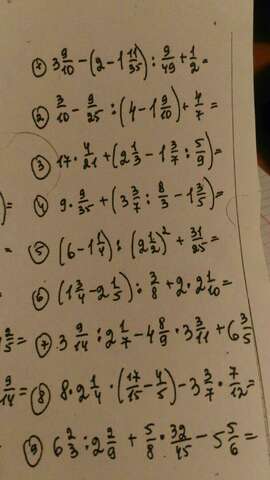 1) 3 9/10 - (2 - 1 11/35) : 9/49 + 1/2 =
2) 3/10 - 9/25 : (4 - 1 9/10) + 4/7 =
3) 17 · 4/21 + (2 1/3 - 1 3/7 : 5/9) =
4) 9 · 9/35 + (3 3/7 : 8/3 - 1 3/5) =
5) (6 - 1 1/4) : (2 1/2)² + 31/25 =
6) (1 3/4 - 2 1/5) : 3/8 + 2 · 2 1/10 =
7) 3 9/14 : 2 1/7 - 4 8/9 · 3 3/11 + 6 3/5
8) 8 · 2 1/4 · (17/15 - 4/5) - 3 3/7 · 7/12 =
9) 6 2/3 : 2 2/9 + 5/8 · 32/45 - 5 5/6 =